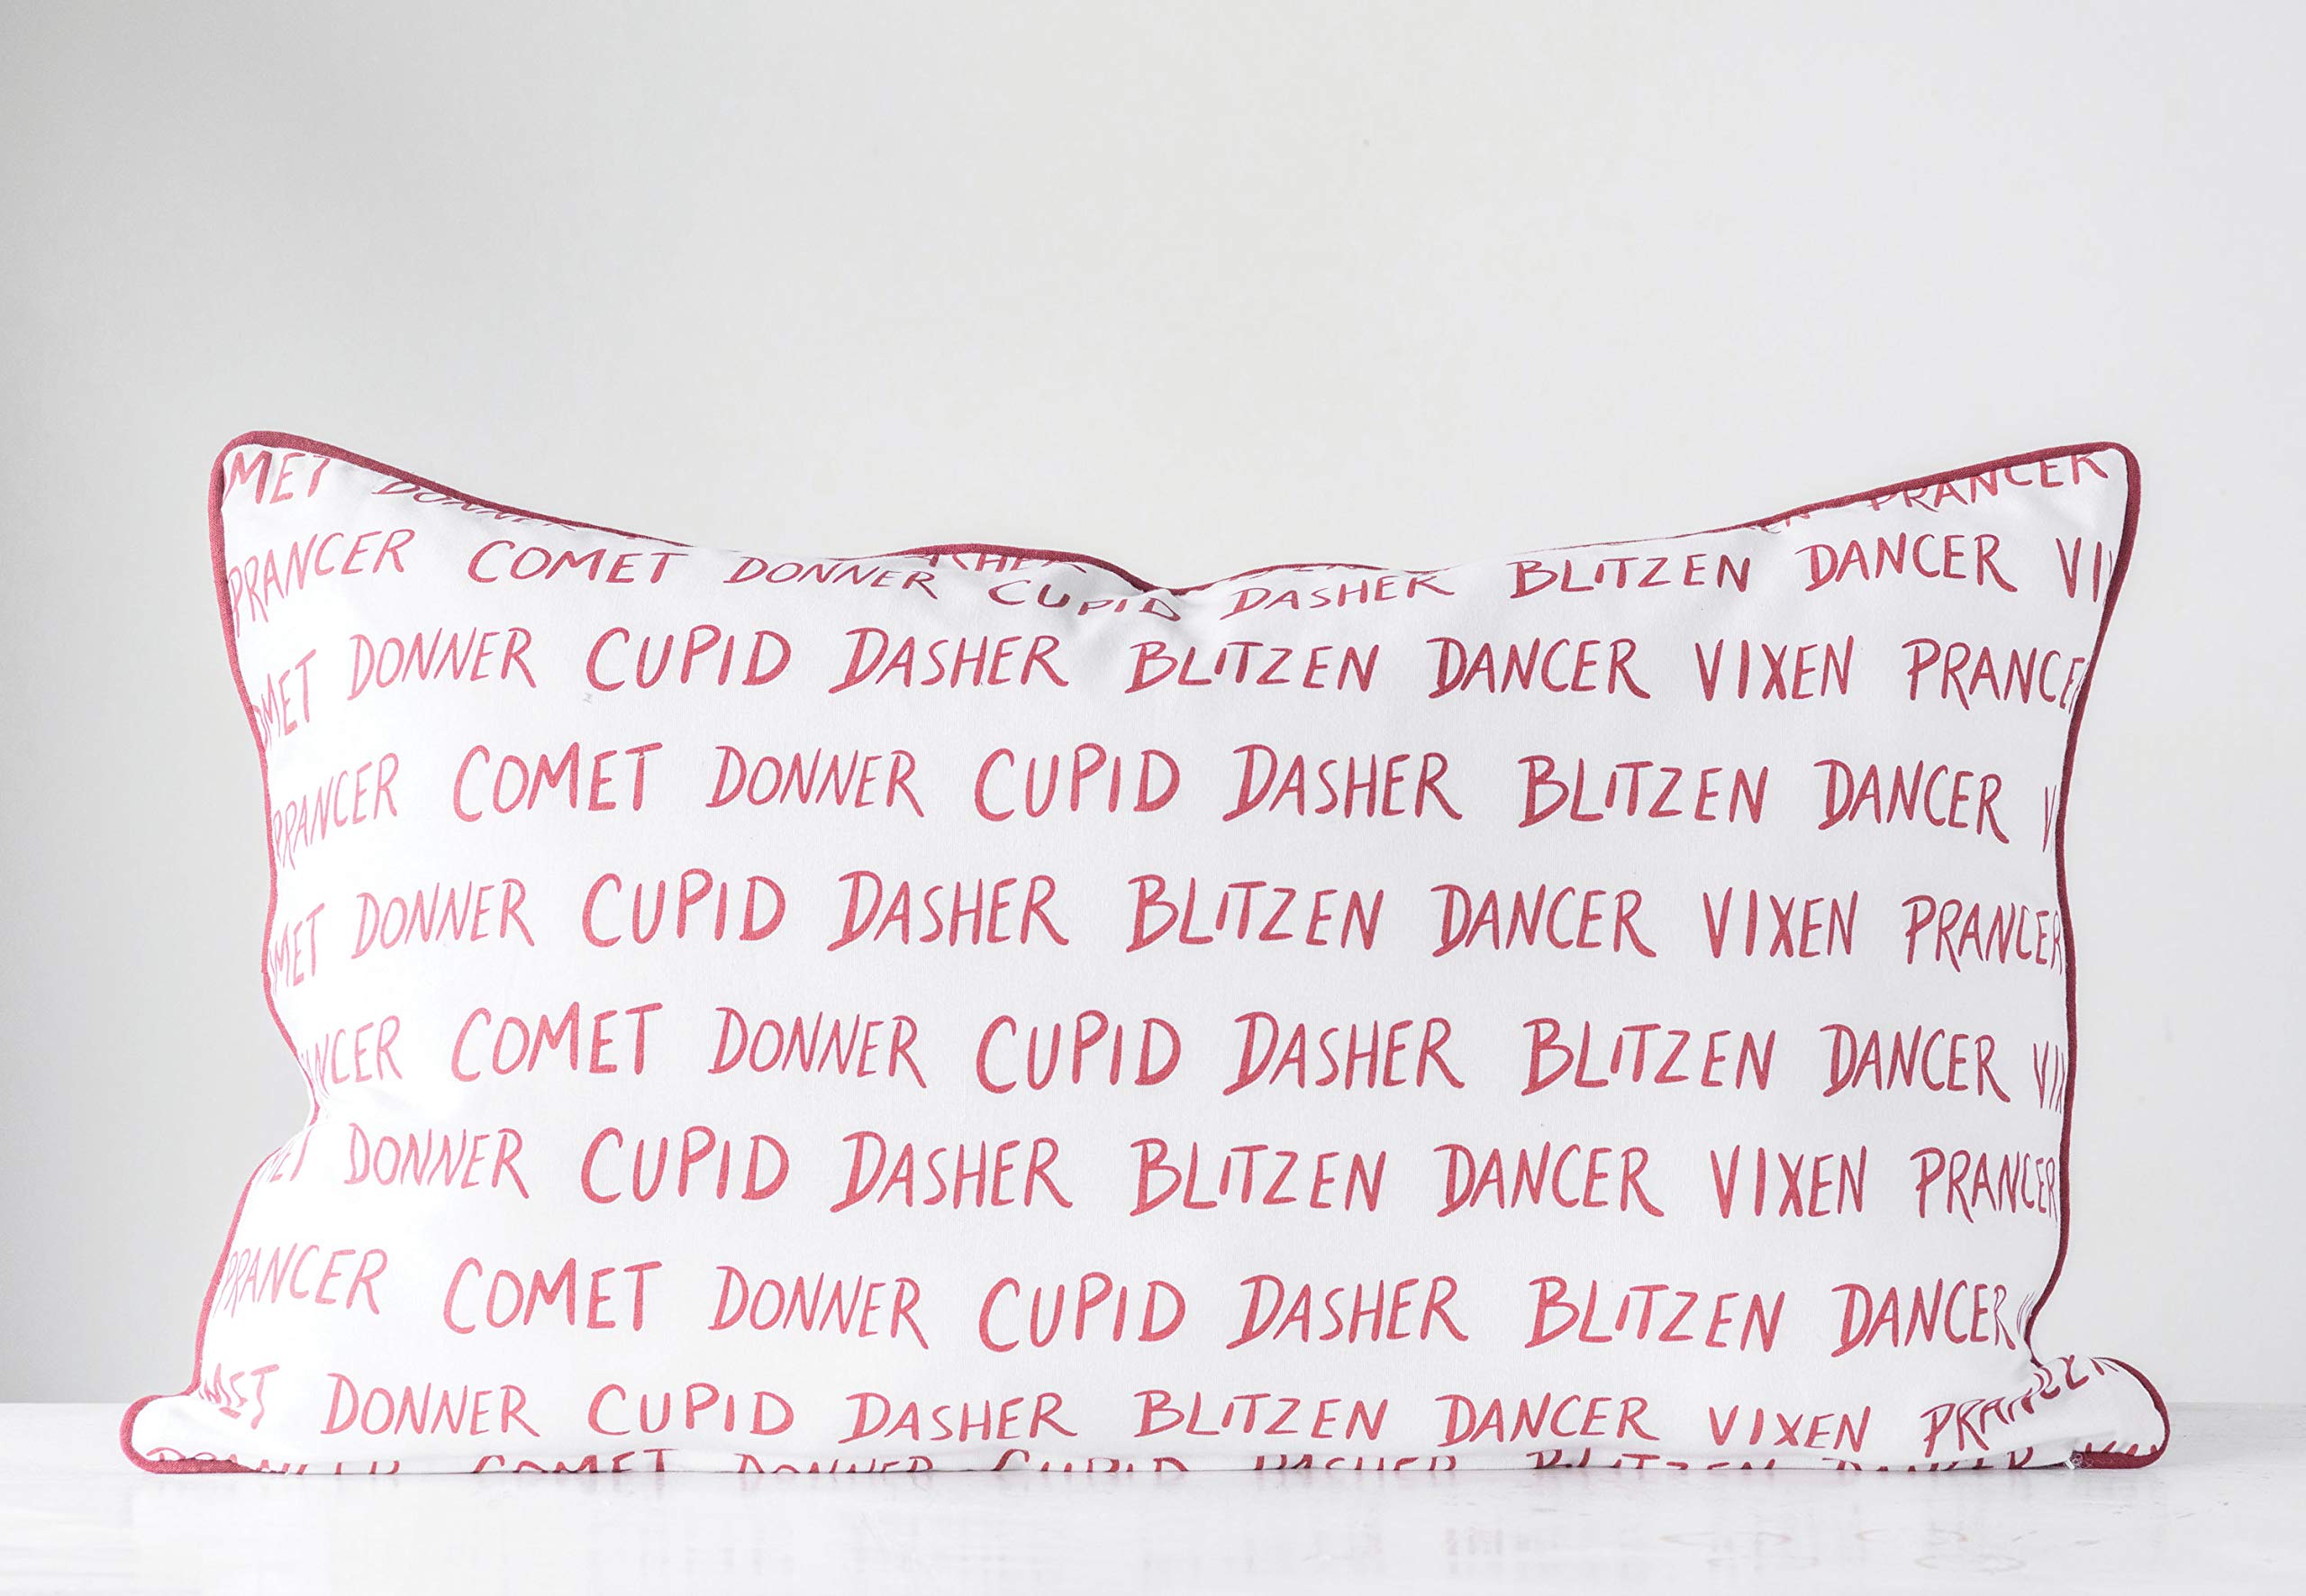 MET DONNER PRANCER
PRANCER COMET DONNER CUPID DASHER BLITZEN DANCER VI
MET DONNER CUPID DASHER BLITZEN DANCER VIXEN PRANCE
PRANCER COMET DONNER CUPID DASHER BLITZEN DANCER V
MET DONNER CUPID DASHER BLITZEN DANCER VIXEN PRANCER
NCER COMET DONNER CUPID DASHER BLITZEN DANCER VIX
ET DONNER CUPID DASHER BLITZEN DANCER VIXEN PRANCER
PRANCER COMET DONNER CUPID DASHER BLITZEN DANCER
MET DONNER CUPID DASHER BLITZEN DANCER VIXEN PRANCER
COMET DONNER CUPID DASHER BLITZEN DANCER